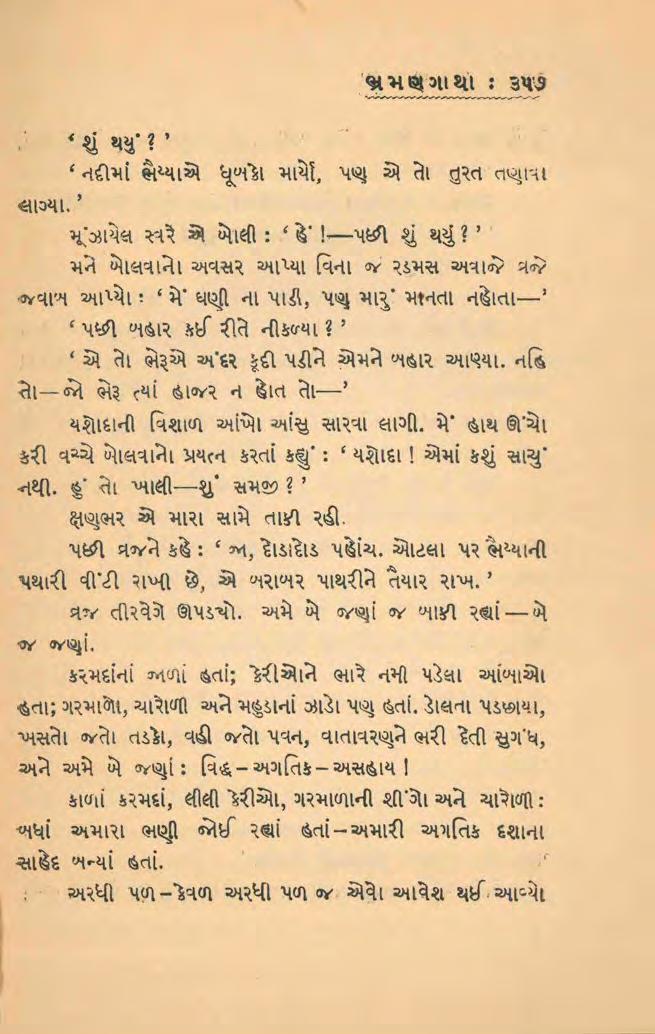 ભ્રમણગાથા : ૩૫૭
‘ શું થયું ? ’
‘ નદીમાં ભૈય્યાએ ધૂબકો માર્યો, પણ એ તો તુરત તણાવા
લાગ્યા. ’
મૂંઝાયેલ સ્વરે એ બોલી : ‘ હેં !—પછી શું થયું ? ’
મને બોલવાનો અવસર આપ્યા વિના જ રડમસ અવાજે વ્રજે
જવાબ આપ્યો : ‘ મેં ઘણી ના પાડી, પણ મારું માનતા નહોતા—’
‘ પછી બહાર કઈ રીતે નીકળ્યા ? ’
‘ એ તો ભેરૂએ અંદર કૂદી પડીને એમને બહાર આણ્યા. નહિ
તો—જો ભેરૂ ત્યાં હાજર ન હોત તો—’
યશોદાની વિશાળ આંખો આંસુ સારવા લાગી. મેં હાથ ઊંચો
કરી વચ્ચે બોલવાનો પ્રયત્ન કરતાં કહ્યું : ‘ યશોદા ! એમાં કશું સાચું
નથી. હું તો ખાલી—શું સમજી ? ’
ક્ષણભર એ મારા સામે તાકી રહી.
પછી વ્રજને કહે : ‘ જા, દોડાદોડ પહોંચ. ઓટલા પર ભૈય્યાની
પથારી વીંટી રાખી છે, એ બરાબર પાથરીને તૈયાર રાખ. ’
વ્રજ તીરવેગે ઊપડચો. અમે બે જણાં જ બાકી રહ્યાં — બે
જ જણાં.
કરમદાંનાં જાળાં હતાં; કેરીઓને ભારે નમી પડેલા આંબાઓ
હતા; ગરમાળો, ચારોળી અને મહુડાનાં ઝાડો પણ હતાં. ડોલતા પડછાયા,
ખસતો જતો તડકો, વહી જતો પવન, વાતાવરણને ભરી દેતી સુગંધ,
અને અમે બે જણાં : વિદ્ધ – અગતિક – અસહાય !
કાળાં કરમદાં, લીલી કેરીઓ, ગરમાળાની શીંગો અને ચારોળી :
બધાં અમારા ભણી જોઈ રહ્યાં હતાં – અમારી અગતિક દશાના
સાહેદ બન્યાં હતાં.
અરધી પળ – કેવળ અરધી પળ જ એવો આવેશ થઈ આવ્યો